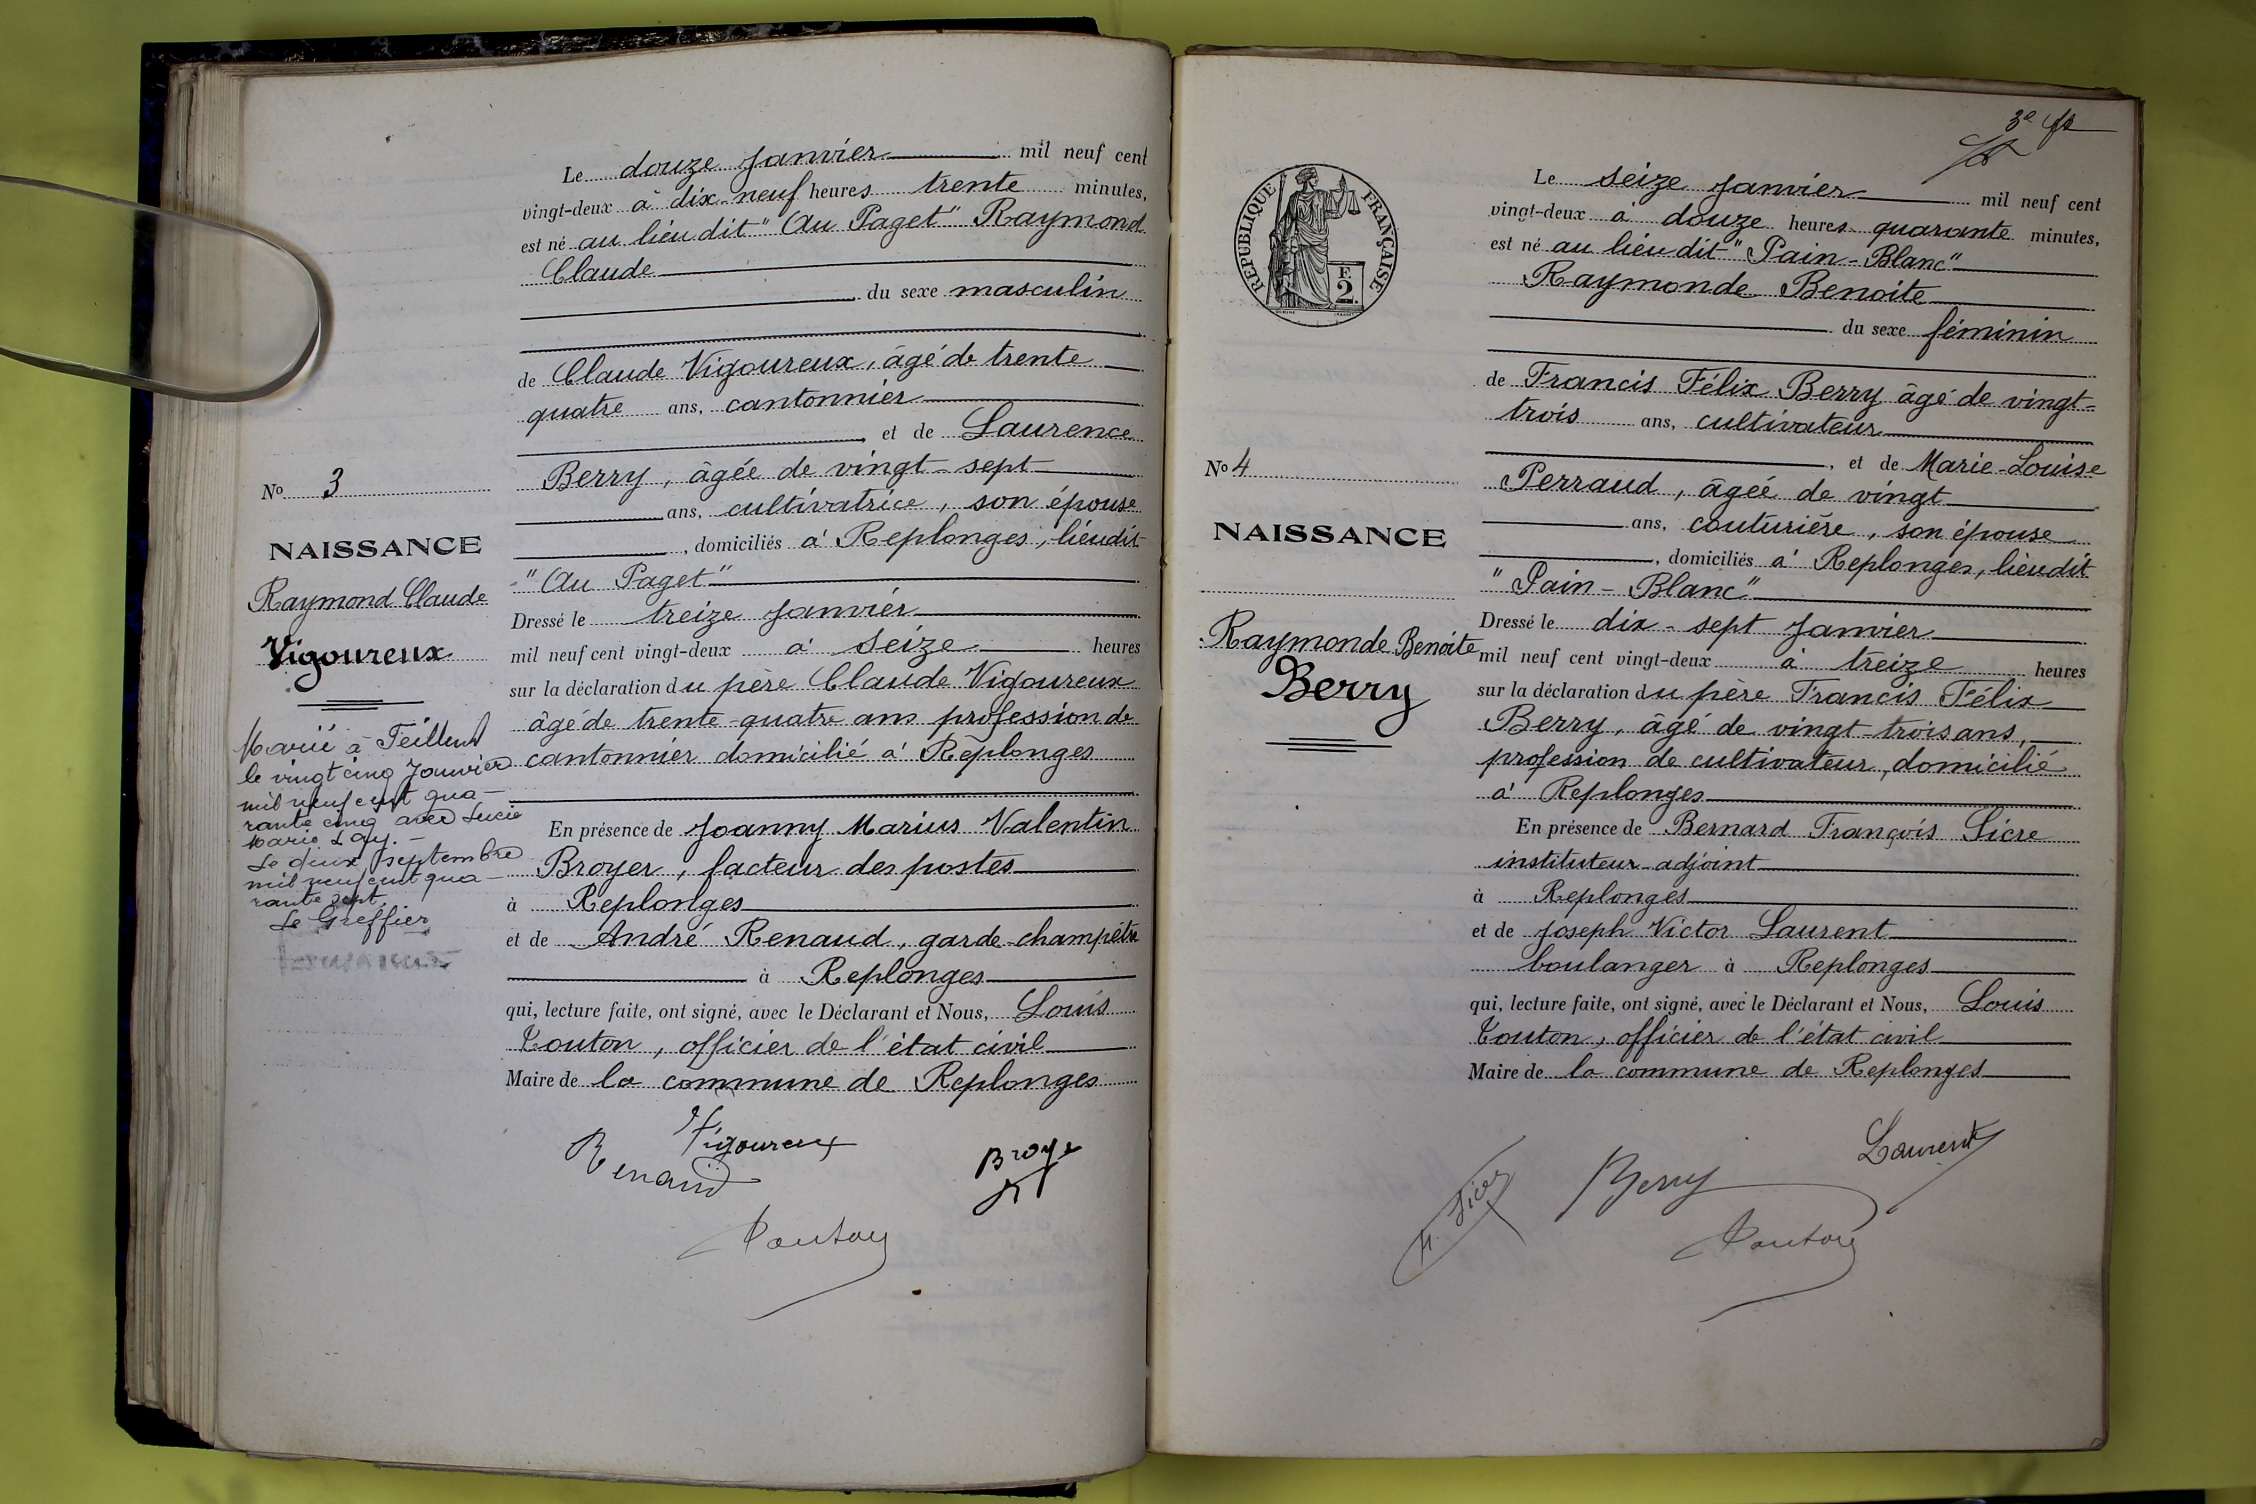 Le douze Janvier mil neuf cent
vingt-deux à dix-neuf heures trente minutes,
est né au lieu dit "Au Paget" Raymond
Claude
du sexe masculin
de Claude Vigoureux, âgé de trente
quatre ans, cantonnier
et de Laurence
Berry, âgée de vingt-sept
ans, cultivatrice, son épouse
, domiciliés à Replonges, lieudit
"Au Paget"
Dressé le treize Janvier
mil neuf cent vingt-deux à seize heures
sur la déclaration du père Claude Vigoureux
âgé de trente-quatre ans profession de
cantonnier domicilié à Replonges
En présence de Joanny Marius Valentin
Broyer, facteur des postes
à Replonges
et de André Renaud, garde-champêtre
à Replonges
qui, lecture faite, ont signé, avec le Déclarant et Nous, Louis
Touton, officier de l'état civil
Maire de la commune de Replonges
Vigoureux
Renaud
Broye
Touton
No 3
NAISSANCE
Raymond Claude
Vigoureux
Marié à Feillens
le vingt cinq Janvier
mil neuf cent qua-
rante cinq avec Lucie
Marie Lay. -
Le deux septembre
mil neuf cent qua-
rante sept.
Le Greffier
3e
RÉPUBLIQUE FRANÇAISE
F.
2
Le seize Janvier mil neuf cent
vingt-deux à douze heures quarante minutes,
est né au lieu dit "Pain-Blanc"
Raymonde Benoite
du sexe féminin
de Francis Félix Berry âgé de vingt-
trois ans, cultivateur
, et de Marie-Louise
Perraud, âgée de vingt
ans, couturière, son épouse
, domiciliés à Replonges, lieudit
"Pain-Blanc"
Dressé le dix-sept Janvier
mil neuf cent vingt-deux à treize heures
sur la déclaration du père Francis Félix
Berry, âgé de vingt-trois ans,
profession de cultivateur, domicilié
à Replonges
En présence de Bernard François Sicre
instituteur-adjoint
à Replonges
et de Joseph Victor Laurent
boulanger à Replonges
qui, lecture faite, ont signé, avec le Déclarant et Nous, Louis
Touton, officier de l'état civil
Maire de la commune de Replonges
Laurent
Berry
Sicre
Touton
No 4
NAISSANCE
Raymonde Benoite
Berry